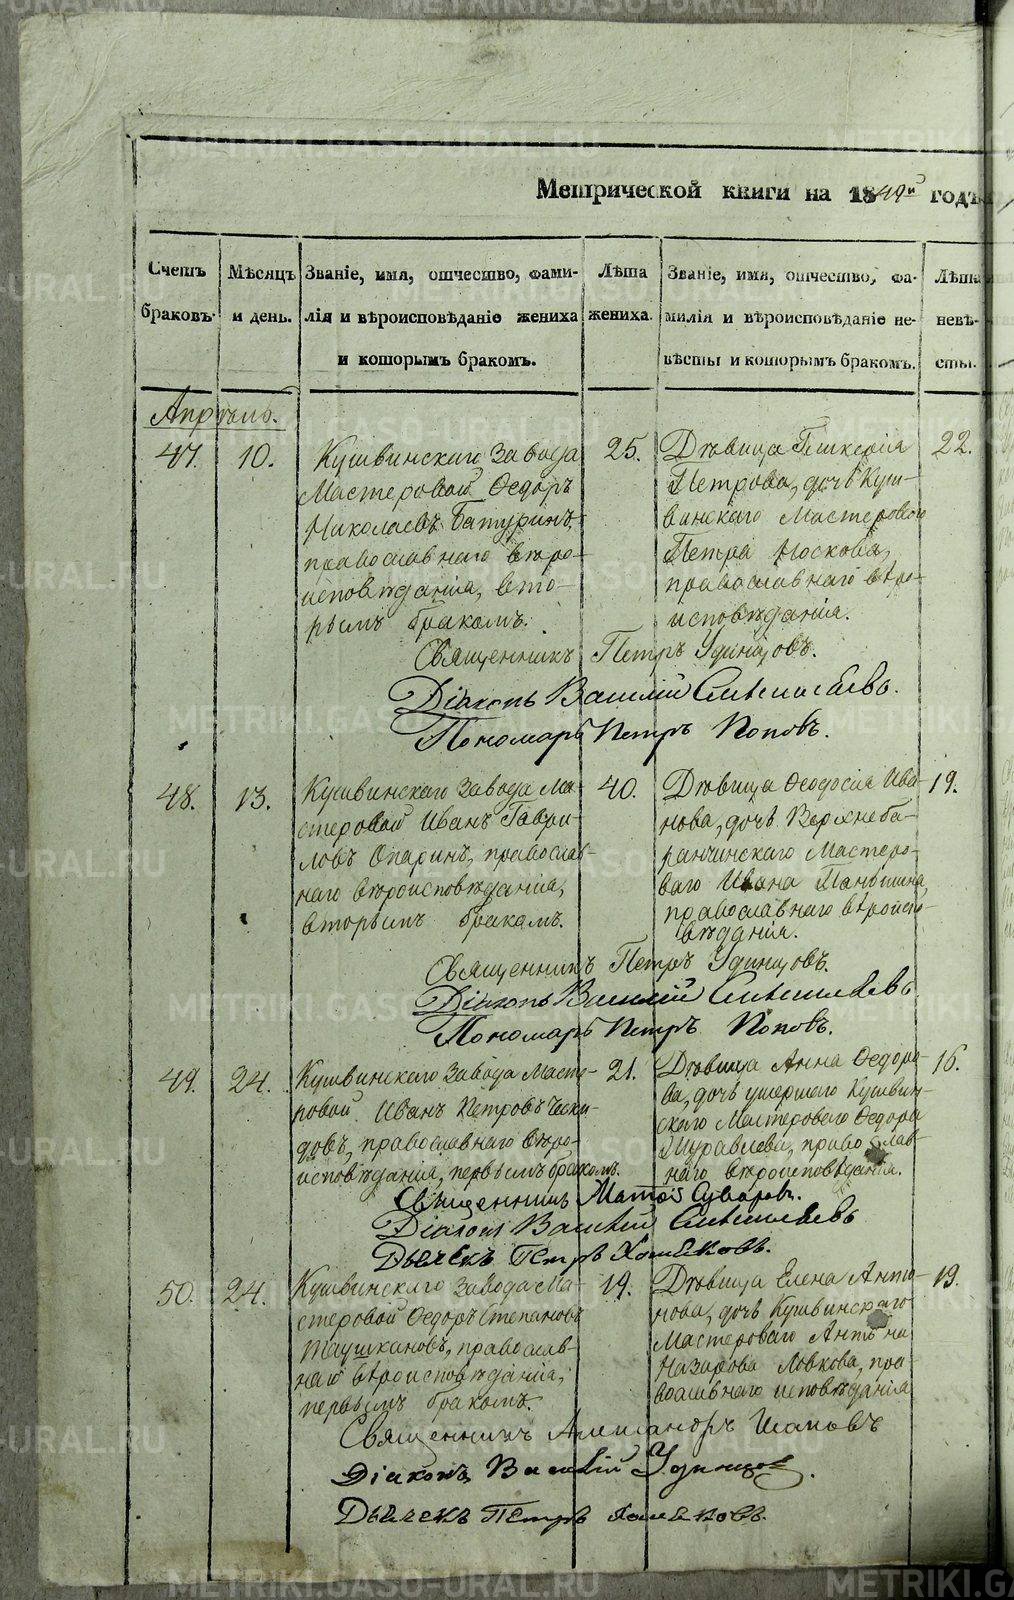 Метрической книги на 1849й годъ
Счетъ браковъ.
Мѣсяцъ и день.
Званіе, имя, отчество, фами-
лія и вѣроисповѣданіе жениха
и которымъ бракомъ.
Лѣта
жениха.
Званіе, имя, отчество, фа-
милія и вѣроисповѣданіе не-
вѣсты и которымъ бракомъ.
Лѣта
невѣ-
сты.
Апрѣль.
47. 10.
Кушвинскаго Завода
Мастеровой Ѳедоръ
Николаевъ Батуринъ,
православнаго вѣро-
исповѣданія, вто-
рымъ бракомъ.
25.
Дѣвица Гликерія
Петрова, дочь Куш-
винскаго Мастероваго
Петра Носкова,
православнаго вѣро-
исповѣданія.
22.
Священникъ Петръ Удинцовъ.
Діаконъ Василій
Пономарь Петръ Поповъ.
48. 13.
Кушвинскаго Завода Ма-
стеровой Иванъ Гаври-
ловъ Опаринъ, православ-
наго вѣроисповѣданія,
вторымъ бракомъ.
40.
Дѣвица Ѳеодосія Ива-
нова, дочь Верхнеба-
ранчинскаго Мастеро-
ваго Ивана Паньшина,
православнаго вѣроиспо-
вѣданія.
19.
Священникъ Петръ Удинцовъ.
Діаконъ Василій
Пономарь Петръ Поповъ.
49. 24.
Кушвинскаго Завода Масте-
ровой Иванъ Петровъ Чески-
довъ, православнаго вѣро-
исповѣданія, первымъ бракомъ.
21.
Дѣвица Анна Ѳедоро-
ва, дочь умершаго Кушвин-
скаго Мастероваго Ѳедора
Муравьева, православ-
наго вѣроисповѣданія.
16.
Священникъ Матѳій Суворовъ.
Діаконъ Василій
Дьячекъ Петръ Хомяковъ.
50. 24.
Кушвинскаго Завода Ма-
стеровой Ѳедоръ Степановъ
Таушкановъ, православ-
наго вѣроисповѣданія,
первымъ бракомъ.
19.
Дѣвица Елена Анто-
нова, дочь Кушвинскаго
Мастероваго Антона
Назарова Ловкова, пра-
вославнаго исповѣданія
19.
Священникъ Александръ Шаповъ
Діаконъ Василій Удинцовъ.
Дьячекъ Петръ Хомяковъ.
METRIKI.GASO-URAL.RU